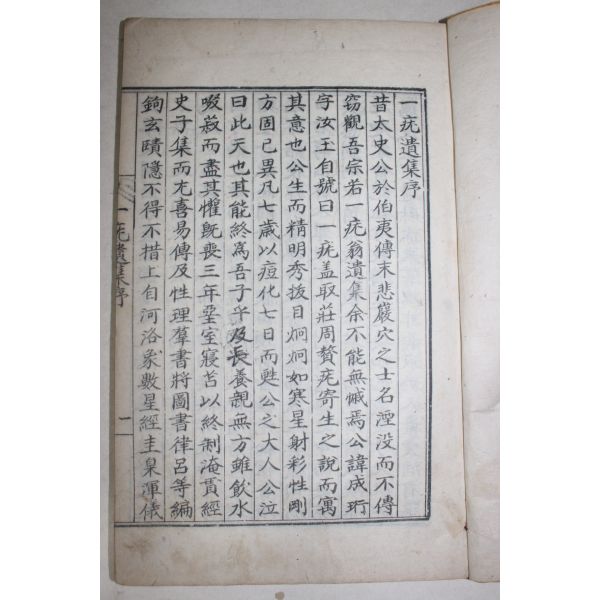 一疣遺集序
昔太史公於伯夷傳末悲巖穴之士名湮没而不傳
窃觀吾宗若一疣翁遺集余不能無慽焉公諱成珩
字汝玉自號曰一疣盖取莊周贅疣寄生之說而寓
其意也公生而精明秀拔目炯炯如寒星射彩性剛
方固已異凡七歲以痘化七日而甦公之大人公泣
曰此天也其能終爲吾子乎及長養親無方雖飮水
啜菽而盡其懽旣喪三年堊室寢苫以終制淹貫經
史子集而尤喜易傳及性理羣書將圖書律呂等編
鉤玄賾隱不得不措上自河洛象數星經圭臬渾儀
一疣遺集序
一